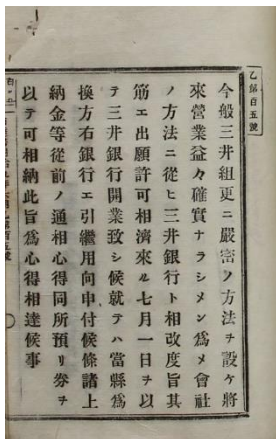 乙第百五號
今般三井組更ニ嚴密ノ方法ヲ設ケ將
來營業益々確實ナラシメン爲メ會社
ノ方法ニ從ヒ三井銀行ト相改度旨其
筋エ出願許可相濟來ル七月一日ヲ以
テ三井銀行開業致シ候就テハ當縣爲
換方右銀行エ引繼用向申付候條諸上
納金等從前ノ通相心得同所預リ券ヲ
以テ可相納此旨爲心得相達候事